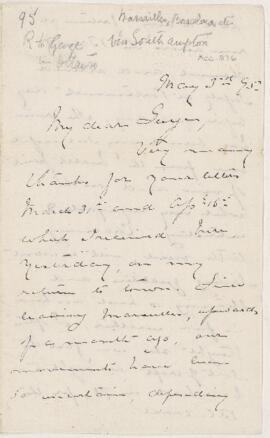 95
Marseilles, Barcelona, etc
R to George
Via Southampton
May 3rd 95
My dear George,
Very many
thanks for your letters
March 31st and Apl 16th
which I received here
yesterday, on my
return to town. Since
leaving Marseilles, upwards
of a month ago, our
movements have been
so uncertain, depending